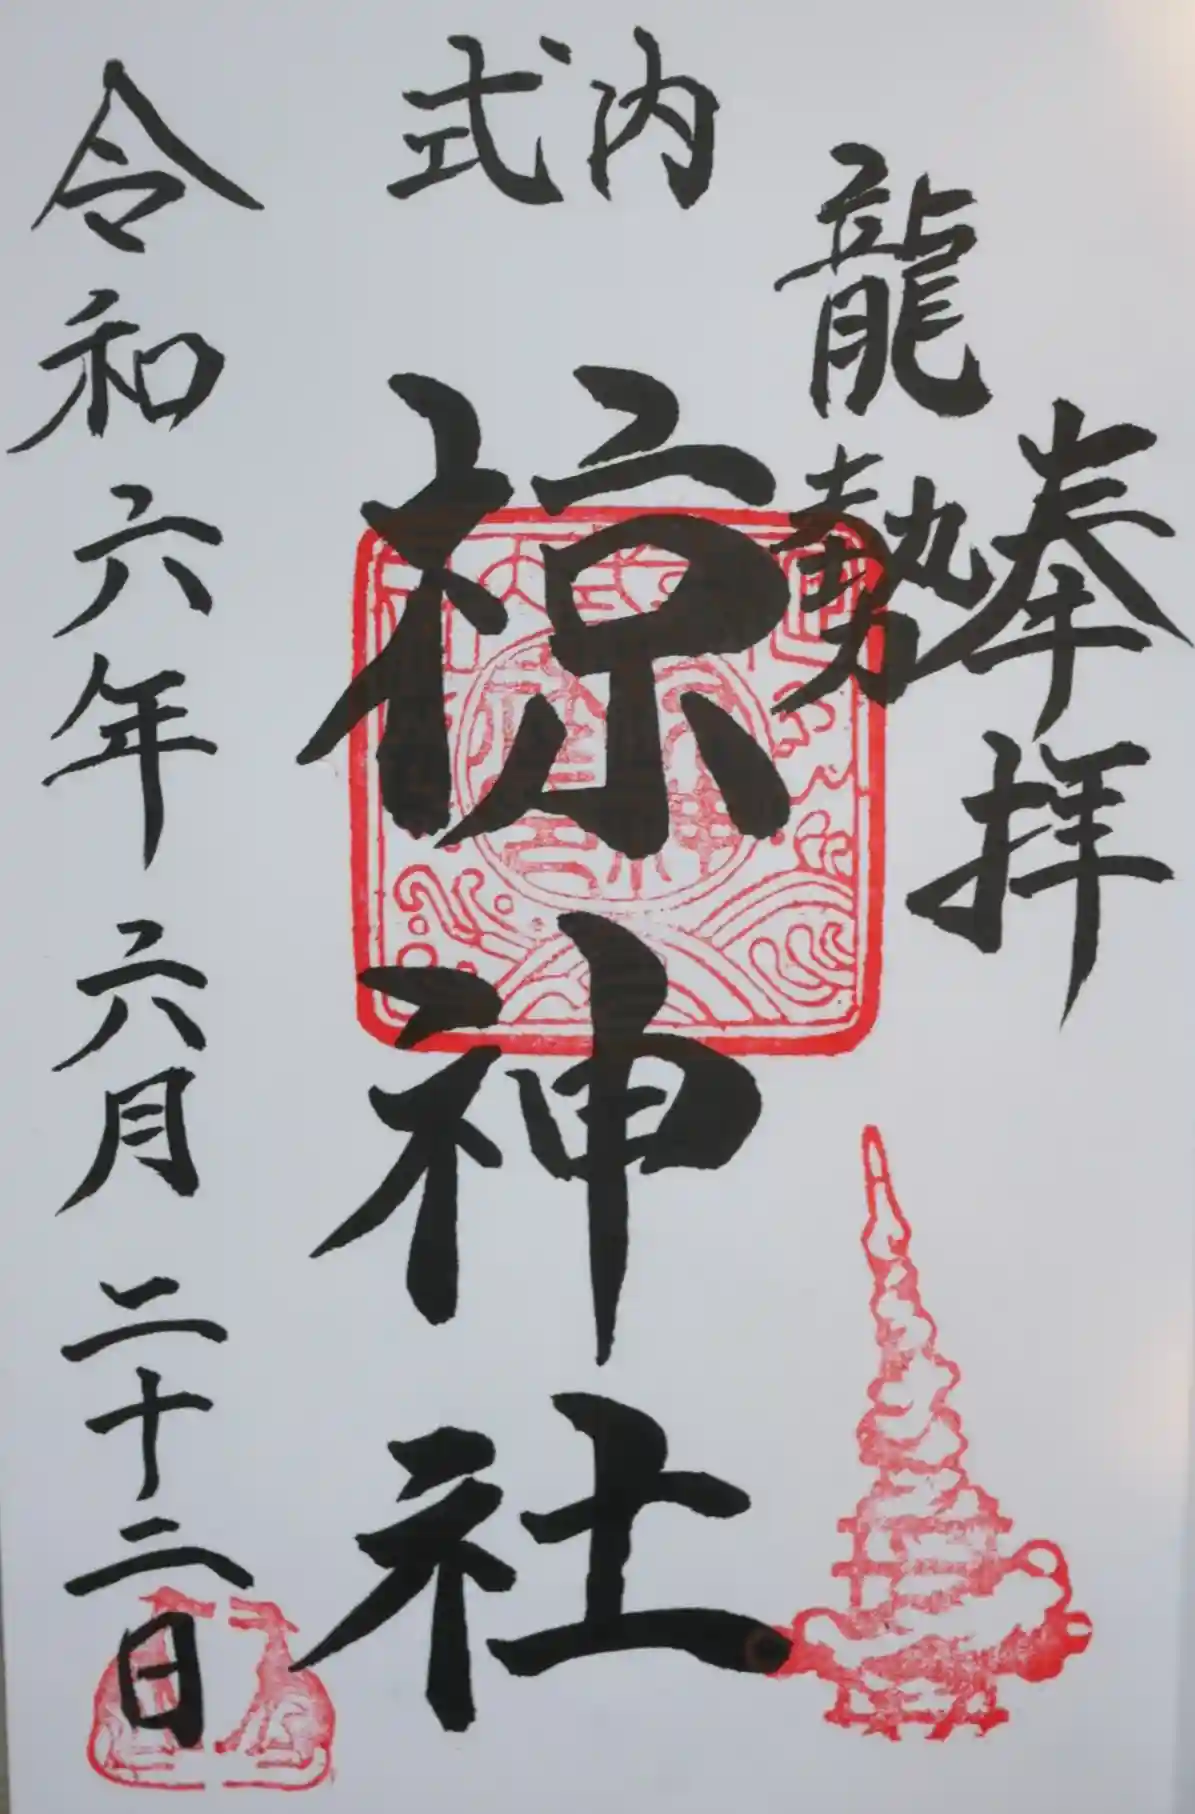 奉拝
龍勢
式内
椋神社
令和六年 六月 二十二日